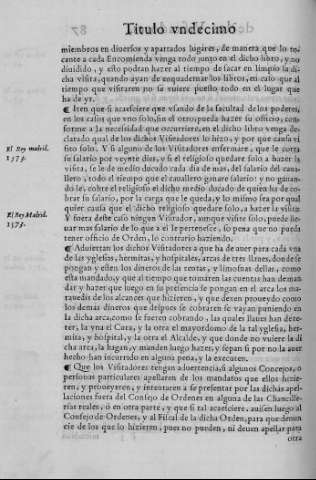 Titulo vndecimo
miembros en diuersos y apartados lugares, de manera que lo to-
cante a cada Encomienda venga todo junto en el dicho libro, y no
diuidido, y esto podran hazer al tiempo de sacar en limpio la di-
cha visita, quando ayan de enquadernar los libros, en caso que al
tiempo que visitaren no se vuiere puesto todo en el lugar que
ha de yr.
¶ Iten que si acaesciere que vsando de la facultad de los poderes,
en los casos que vno solo, sin el otro, pueda hazer su officio, con-
forme a la necessidad que occurriere, en el dicho libro venga de-
clarado qual de los dichos Visitadores lo hizo, y por que causa vi
sito solo. Y si alguno de los Visitadores enfermare, que le corra
El Rey madrid.
1573.
su salario por veynte dias, y si el religioso quedare solo a hazer la
visita, se le de medio ducado cada dia de mas, del salario del caua-
llero, todo el tiempo que el cauallero gozare salario: y no gozan-
do le, cobre el religioso el dicho medio ducado de quien ha de co-
brar su salario, por la carga que le queda, y lo mismo sea por qual
quier causa que el dicho religioso quedare solo, a hazer la visita
El Rey Madrid.
1573.
Y fuera deste caso ningun Visitador, aunque visite solo, puede lle-
uar mas salario de lo que a el le pertenesce, so pena que no pueda
tener officio de Orden, lo contrario haziendo.
¶ Aduiertan los dichos Visitadores a que ha de auer para cada vna
de las yglesias, hermitas, y hospitales, arcas de tres llaues, donde se
pongan y esten los dineros de las rentas, y limosnas dellas, como
esta mandado, que al tiempo que tomaren las cuentas han deman-
dar y hazer que luego en su presencia se pongan en el arca los ma
rauedis de los alcances que hizieren, y que deuen proueydo como
los demas dineros que despues se cobraren se vayan puniendo en
la dicha arca, como se fueren cobrando, las quales llaues han de te-
ner, la vna el Cura, y la otra el mayordomo de la tal yglesia, her-
mita, y hospital, y la otra el Alcalde, y que donde no vuiere la di
cha arca, la hagan, y manden luego hazer, y sepan si por no la auer
hecho han incurrido en alguna pena, y la executen.
¶ Que los Visitadores tengan aduertencia, si algunos Concejos, o
personas particulares apellaren de los mandatos que ellos hizie-
ren, y proueyeren, e intentaren a se presentar por las dichas ape-
laciones fuera del Consejo de Ordenes en alguna de las Chancille-
rias reales, o en otra parte, y que si tal acaesciere, auisen luego al
Consejo de Ordenes, y al Fiscal de la dicha Orden, para que denun
cie de los que lo hizieren, pues no pueden, ni deuen apellar para
otra